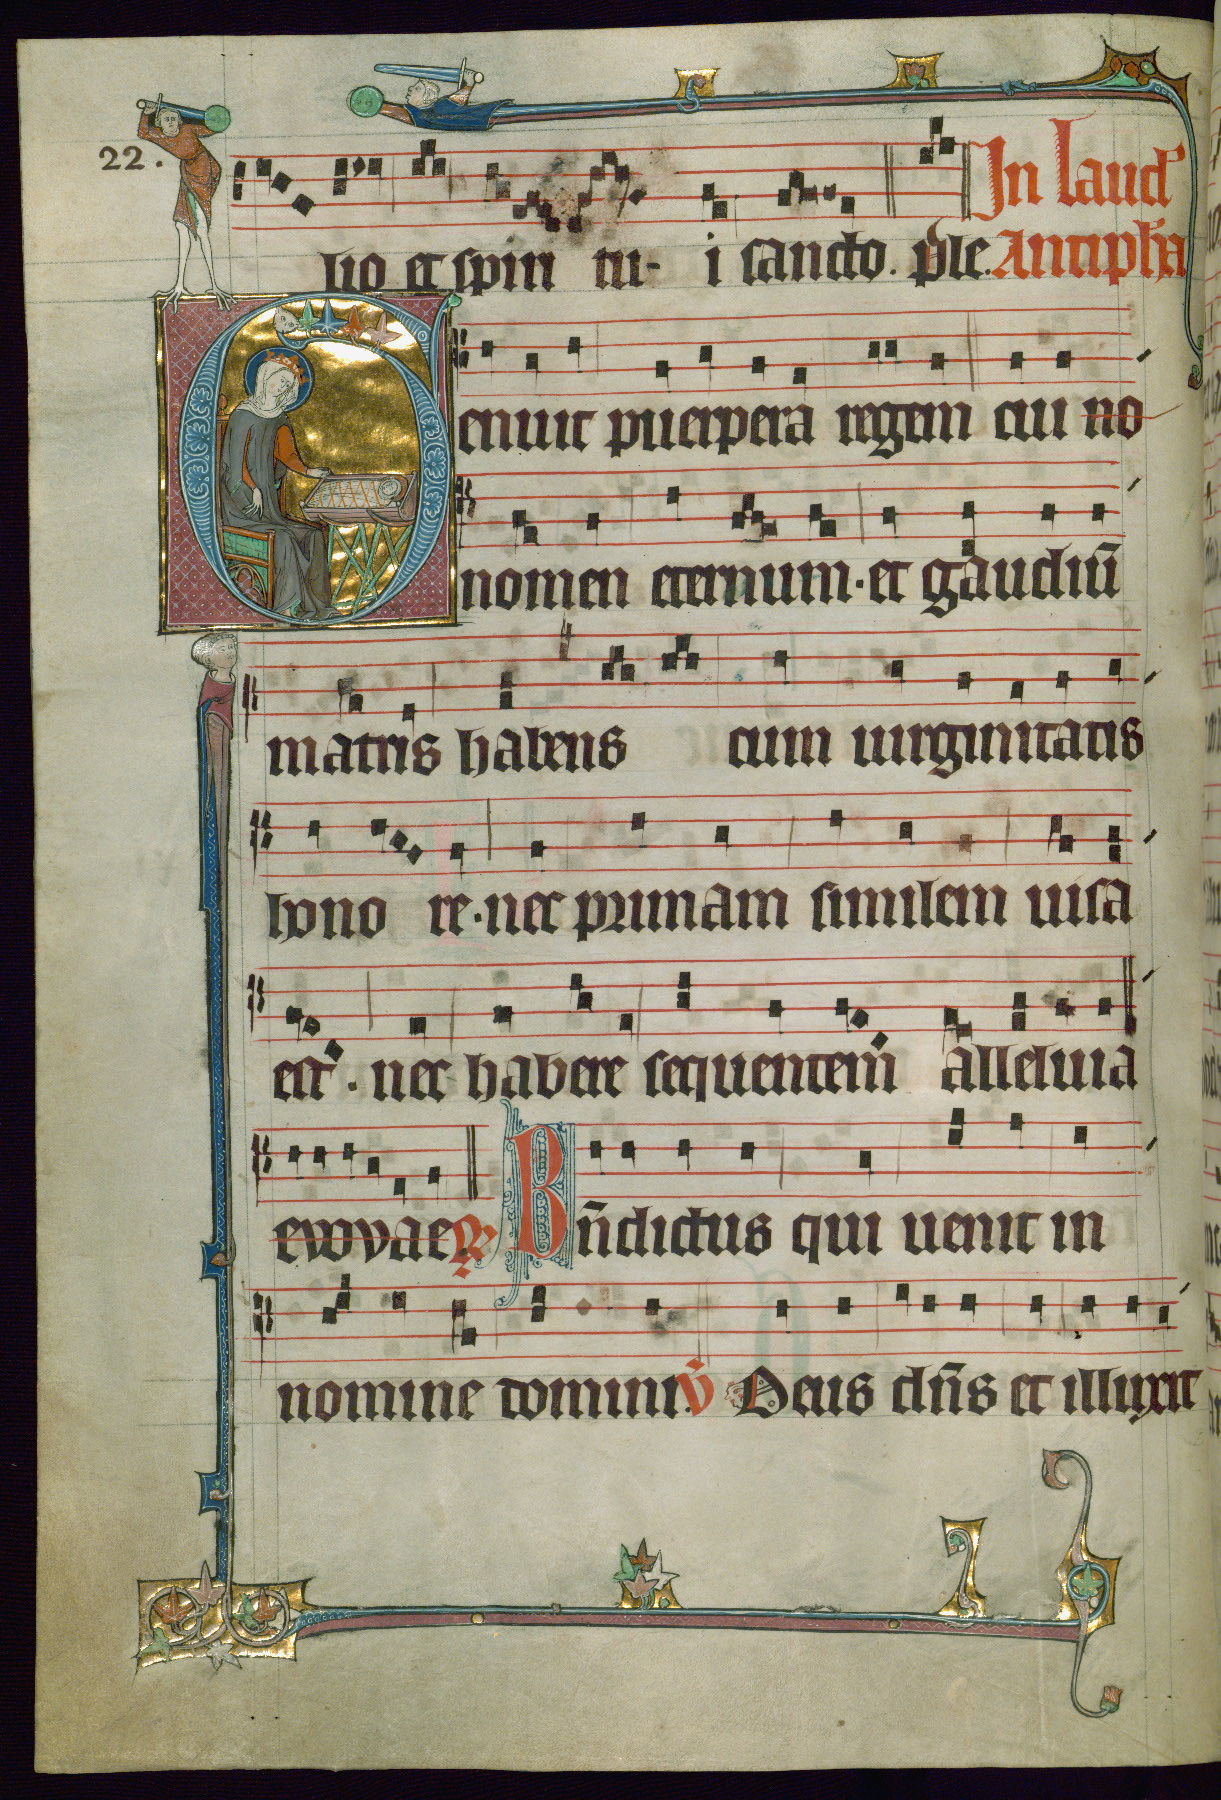 22.
lio et spiri tu- i sancto. ple. In laud Antipha
Genuit puerpera regem cui no
nomen eternum. et gaudiū
matris habens cum uirginitatis
hono re. nec primam similem uisa
est. nec habere sequentem alleluia
evovae R Bn̄dictus qui uenit in
nomine domini v̄ Deus dn̄s et illuxit